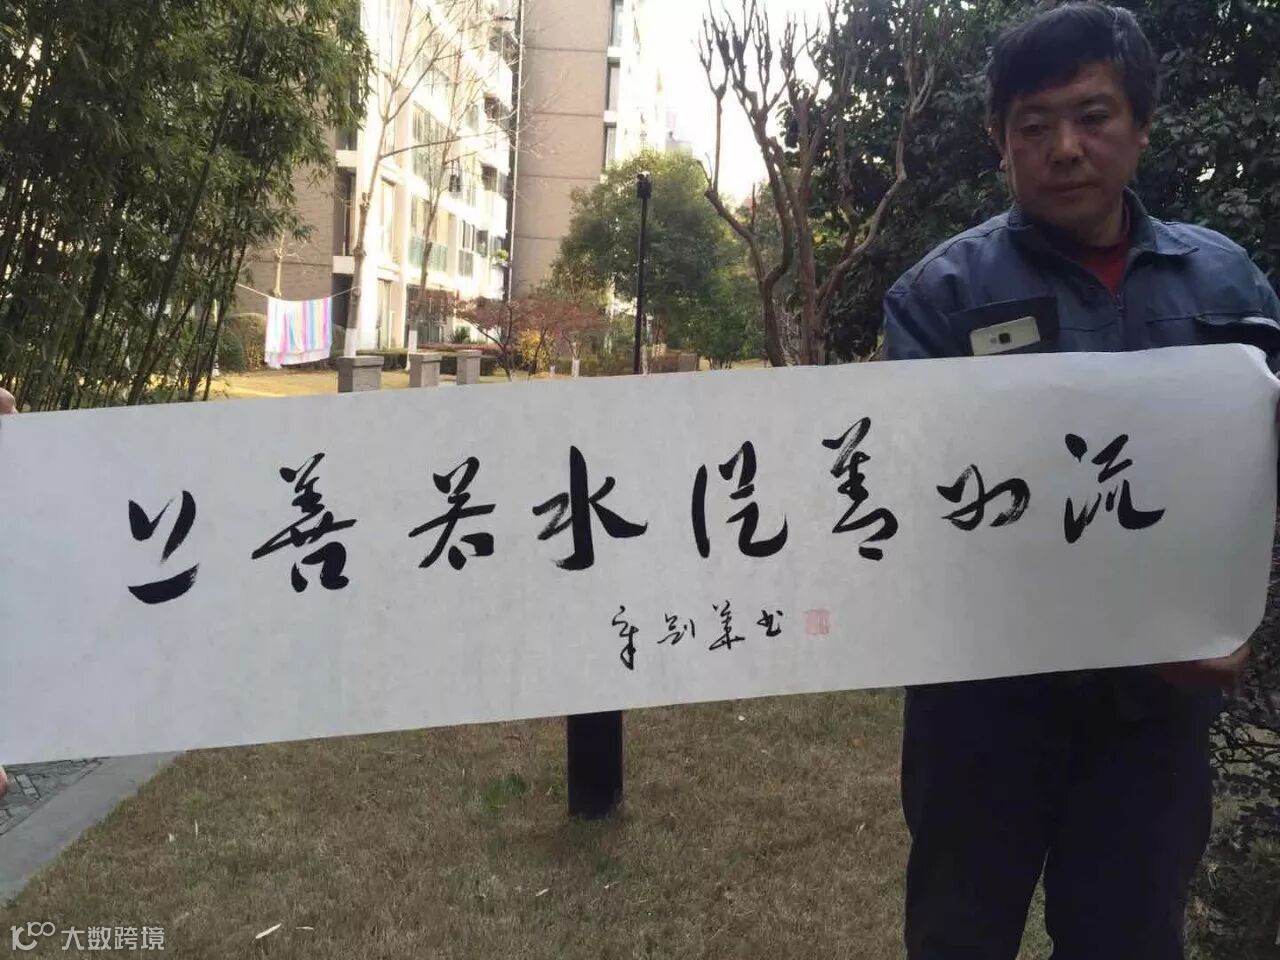 上善若水从善如流
章剑华书
大数跨境